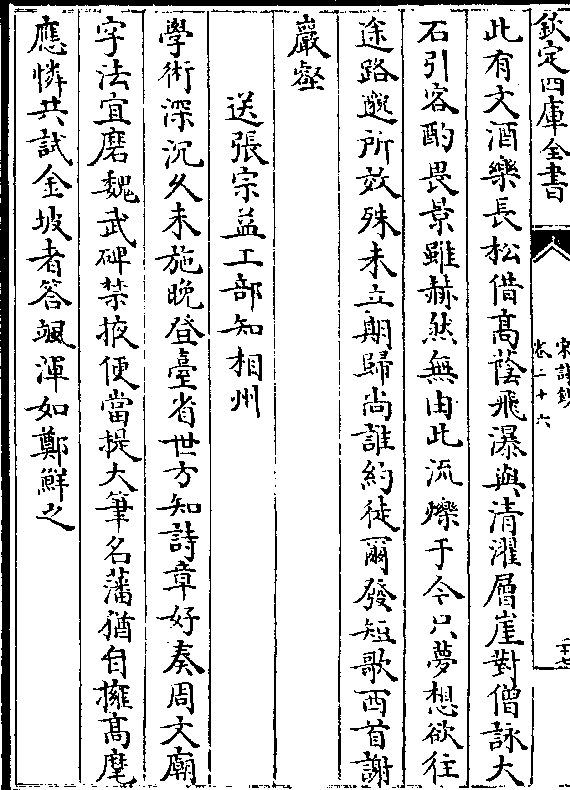 欽定四庫全書
宋詩鈔
卷二十六
二十七
此有文酒樂長松借髙蔭飛瀑與清濯層崖對僧詠大
石引客酌畏景雖赫然無由此流爍于今只夢想欲往
途路邈所效殊未立期歸尚誰約徒爾發短歌西首謝
巖壑
送張宗益工部知相州
學術深沉久未施晚登臺省世方知詩章好奏周文廟
字法宜磨魏武碑禁掖便當提大筆名藩猶自擁髙麾
應憐共試金坡者答颯渾如鄭鮮之